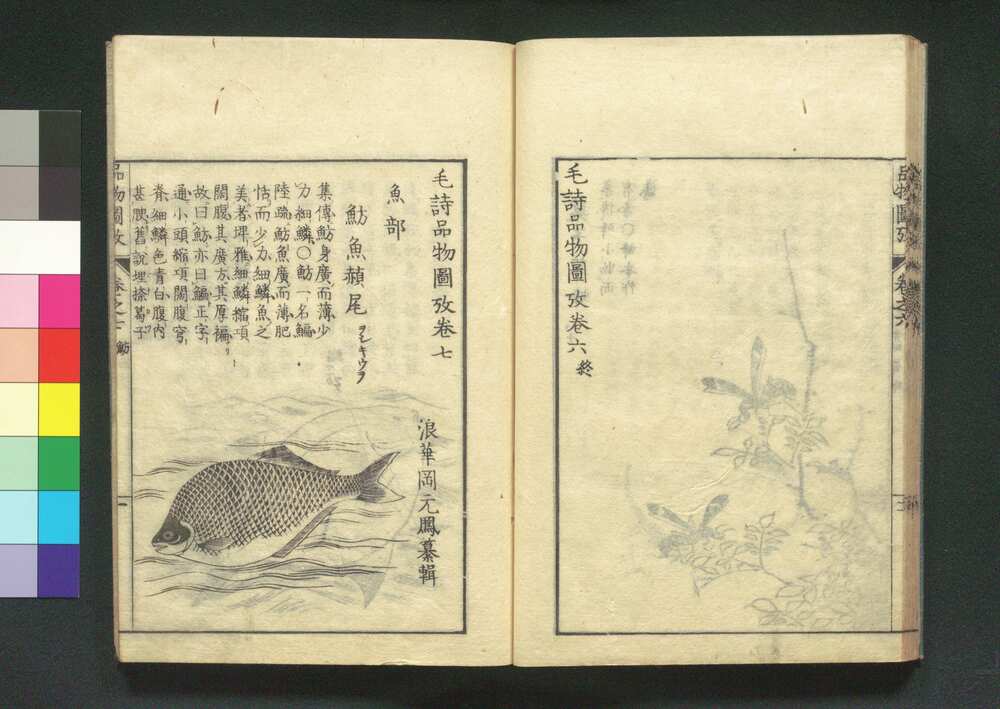 毛詩品物圖攷卷六 終
毛詩品物圖攷卷七
浪華岡元鳳纂輯
魚部
魴魚赬尾 ヲシキウヲ
集傳魴身廣而薄少
力細鱗〇魴一名鯿
陸疏魴魚廣而薄肥
恬而少力細鱗魚之
美者埤雅細鱗縮項
闊腹其廣方其厚褊
故曰魴亦曰鯿正字
通小頭縮項闊腹穹
脊細鱗色青白腹内
甚腴舊說
品物圖攷 卷之七 魴 一
品物圖攷 卷之六